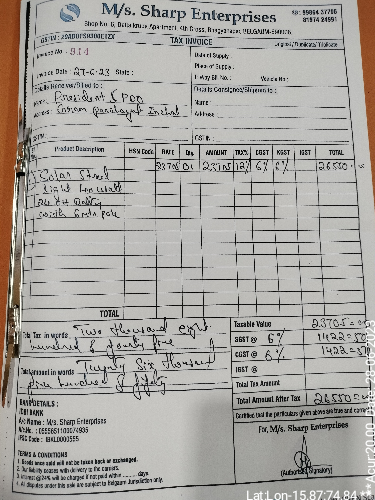 M/s. Sharp Enterprises
Shop No. 6, Dattakrupa Apartment, 4th Cross, Bhagyanagar, BELGAUM-590006
TAX INVOICE
Original / Duplicate / Triplicate
Invoice No : 914
Date of Supply :
Invoice Date : 27-6-23 State :
Place of Supply :
E-Way Bill No. : Vehicle No :
Details Receiver/Billed to :
Details Consignee/Shipment to :
Name: President & PDO
Name :
Address:
Address :
GSTIN :
GSTIN :
Product Description HSN Code RATE Qty. AMOUNT TAX% CGST KGST IGST TOTAL
Solar Street 23705 01 23705 12% 6% 6% 26550=00
light
TOTAL
Total Tax in words Two thousand eight
hundred & fourty five
Total Amount in words Twenty Six thousand
five hundred & fifty
Taxable Value 23705=00
SGST @ 6% 1422=50
CGST @ 6% 1422=50
IGST @
Total Tax Amount
Total Amount After Tax 26550=00
Certified that the particulars given above are true and correct
BANK DETAILS :
IDBI BANK
A/c Name : M/s. Sharp Enterprises
A/c No. : 0555651100074935
IFSC Code : IBKL0000555
For, M/s. Sharp Enterprises
(Authorised Signatory)
TERMS & CONDITIONS
1. Goods once sold will not be taken back or exchanged.
2. Our liability ceases with delivery to the carriers.
3. Interest @24% will be charged if not paid within ......... days.
4. All disputes under this are subject to Belgaum Jurisdiction only.
Lat:Lon-15.87:74.84